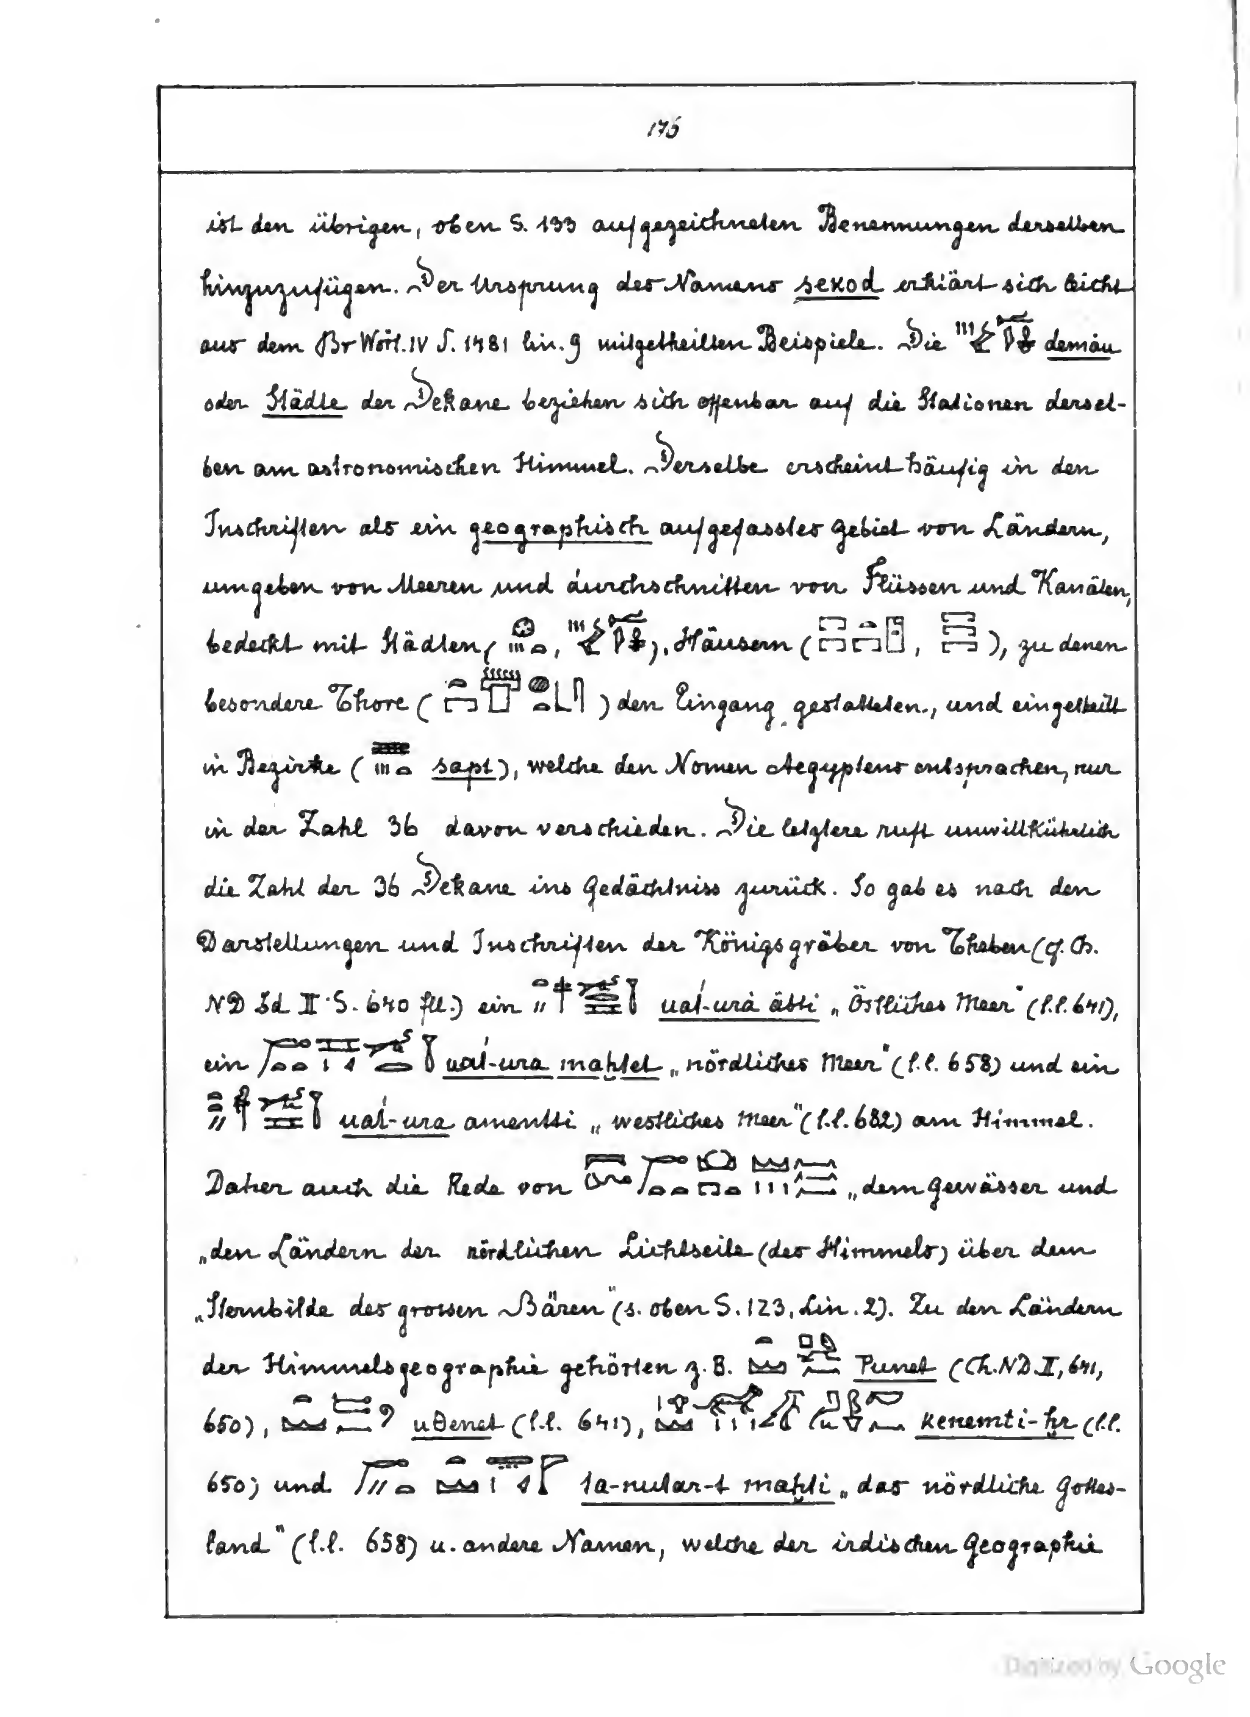 176
ist den übrigen, oben S. 133 aufgezeichneten Benennungen derselben
hinzuzufügen. Der Ursprung des Namens seχod erklärt sich leicht
aus dem Br Wört. IV S. 1481 lin. 9 mitgetheilten Beispiele. Die demàu
oder Städte der Dekane beziehen sich offenbar auf die Stationen dersel-
ben am astronomischen Himmel. Derselbe erscheint häufig in den
Inschriften als ein geographisch aufgefasstes Gebiet von Ländern,
umgeben von Meeren und durchschnitten von Flüssen und Kanälen,
bedeckt mit Städten ( , ), Häusern ( , ), zu denen
besondere Thore ( ) den Eingang gestatteten, und eingetheilt
in Bezirke ( sapt), welche den Nomen Aegyptens entsprachen, nur
in der Zahl 36 davon verschieden. Die letztere ruft unwillkührlich
die Zahl der 36 Dekane ins Gedächtniss zurück. So gab es nach den
Darstellungen und Inschriften der Königsgräber von Theben (cf. Ch.
ND Bd II S. 640 fll.) ein uat'-urà àbti „Östliches Meer" (l.l. 641),
ein uat'-ura maḥtet „nördliches Meer" (l.l. 658) und ein
uat'-ura amentti „westliches Meer" (l.l. 682) am Himmel.
Daher auch die Rede von „dem Gewässer und
„den Ländern der nördlichen Lichtseite (des Himmels) über dem
„Sternbilde des grossen Bären" (s. oben S. 123, Lin. 2). Zu den Ländern
der Himmelsgeographie gehörten z. B. Punet (Ch. ND. II, 641,
650), uθenet (l.l. 641), kenemti-ḥr (l.l.
650) und ta-nutar-t maḥti „das nördliche Gottes-
land" (l.l. 658) u. andere Namen, welche der irdischen Geographie
Digitized by Google